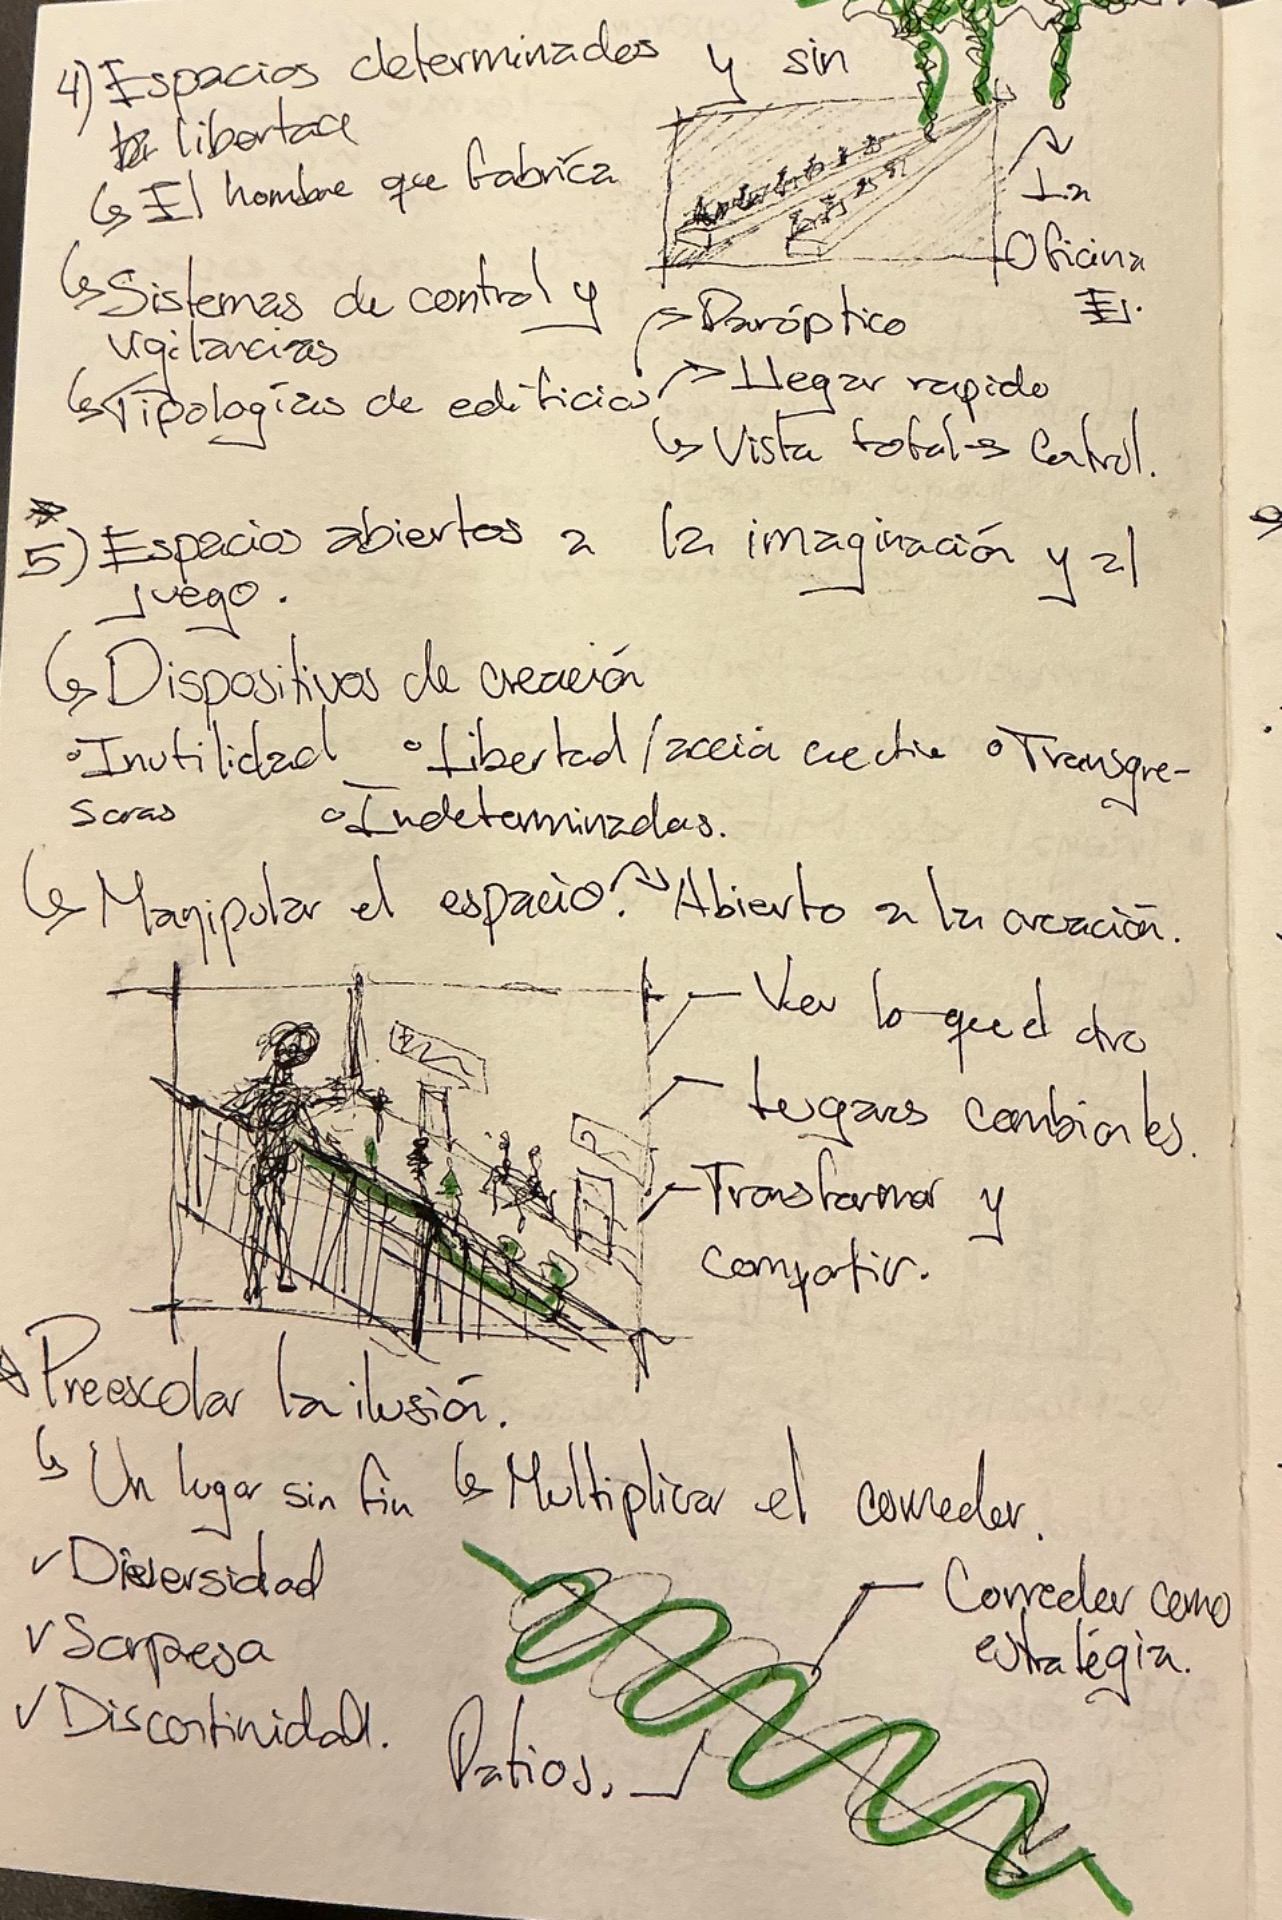 4) Espacios determinados y sin
libertad
↳ El hombre que fabrica
La
Oficina
Ej.
↳ Sistemas de control y
vigilancias
↳ Tipologías de edificios
→ Panóptico
→ Llegar rapido
↳ Vista total → Control.
5) Espacios abiertos a la imaginación y al
juego.
↳ Dispositivos de creación
• Inutilidad • Libertad / • Transgre-
soras • Indeterminadas.
↳ Manipular el espacio. Abierto a la creación.
- Ver lo que el otro
- Lugares
- Transformar y
compartir.
Preescolar la ilusión.
↳ Un lugar sin fin ↳ Multiplicar el corredor.
✓ Diversidad
✓ Sorpresa
✓ Discontinidad.
Corredor como
estratégia.
Patios.